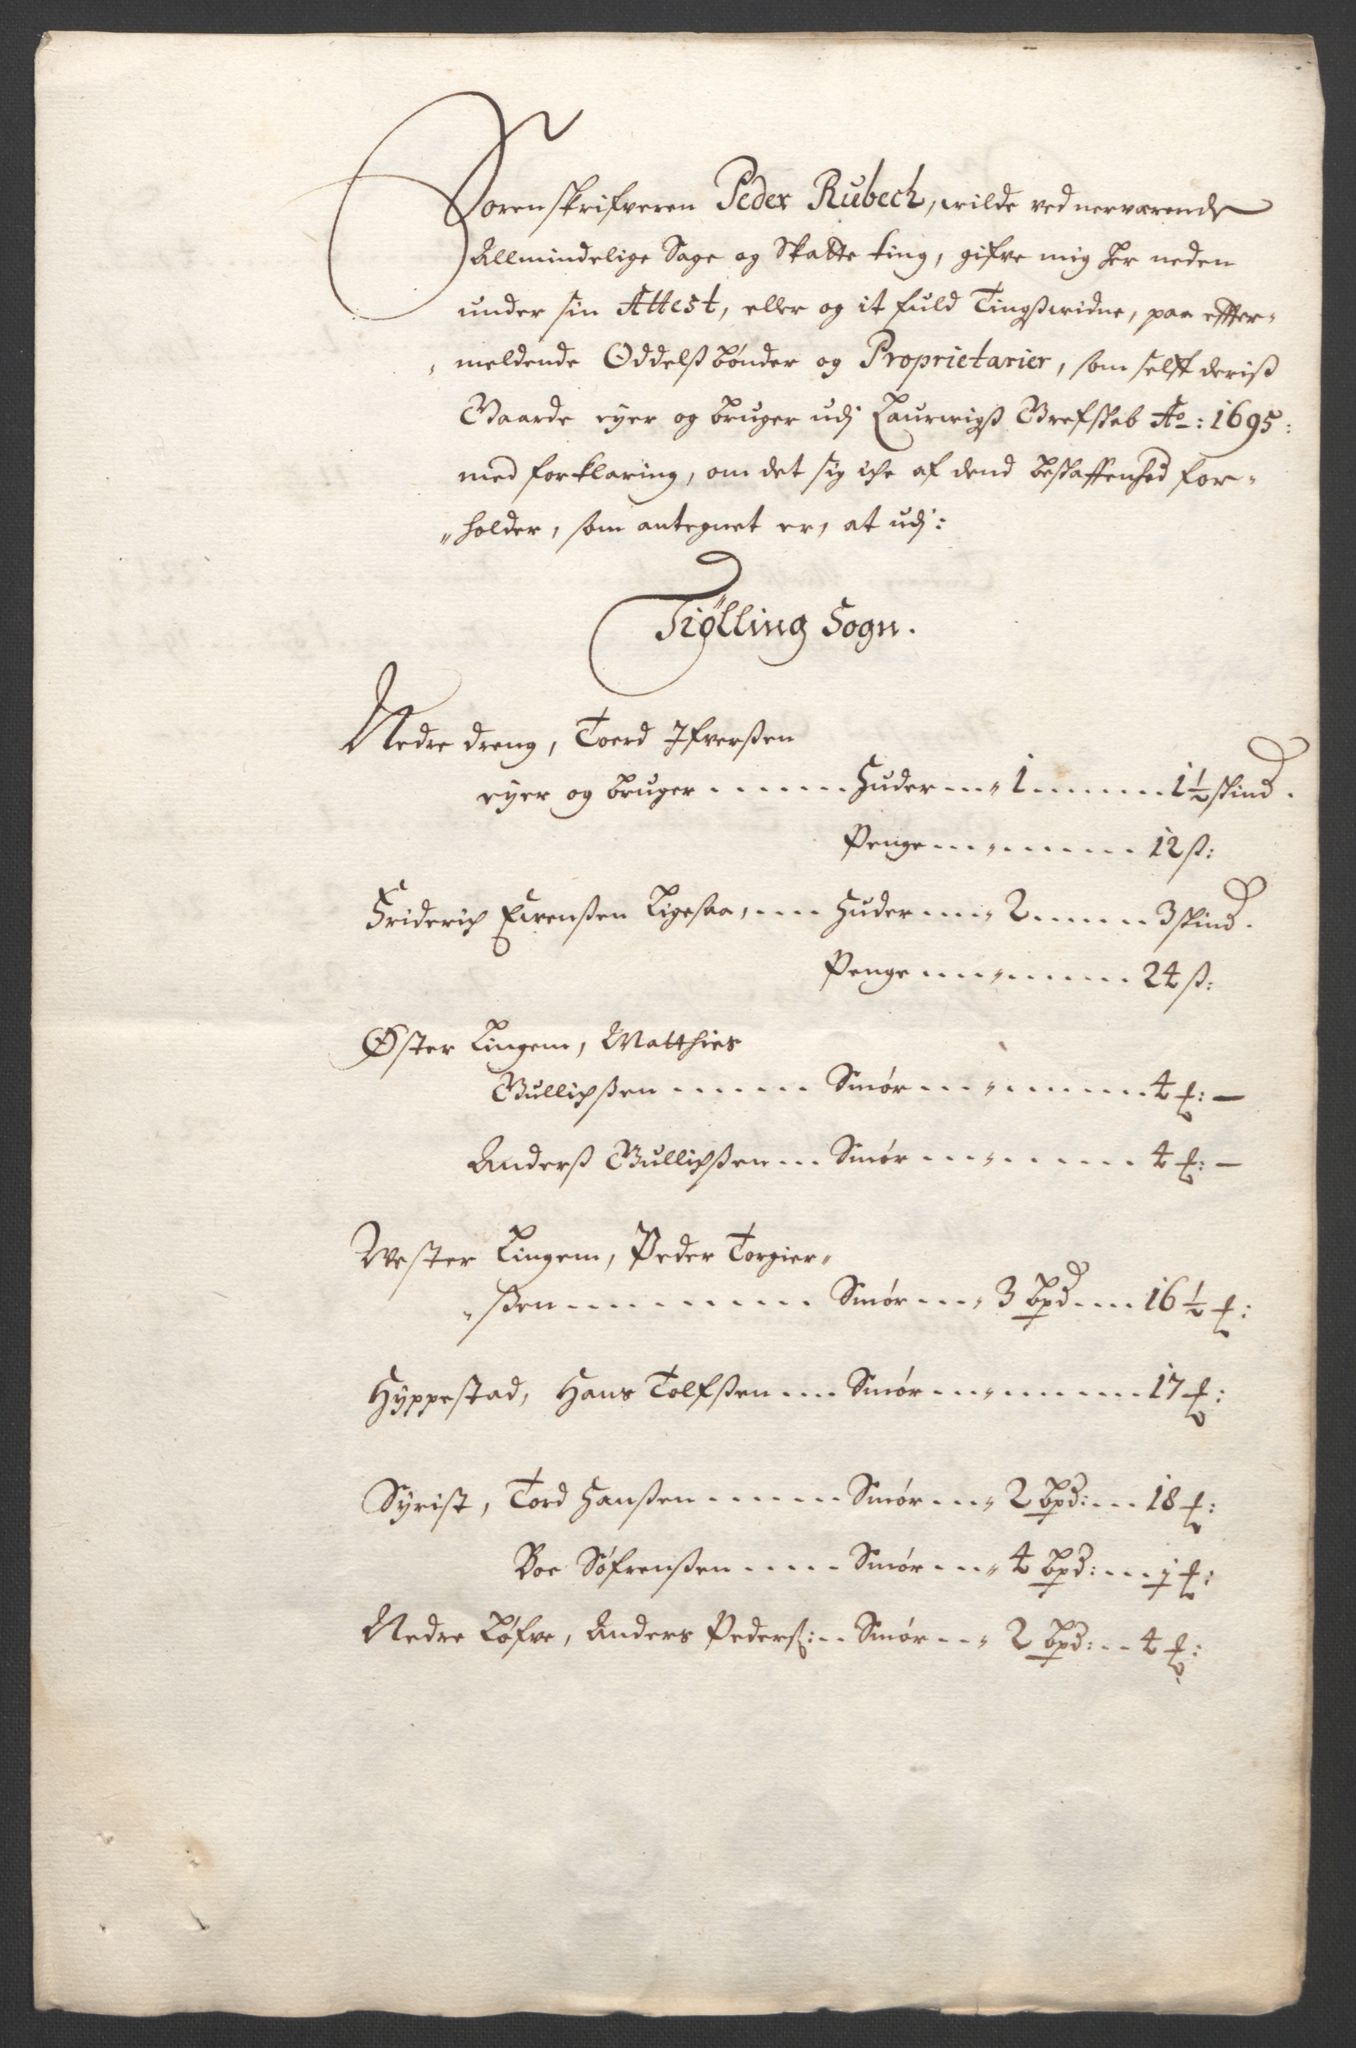 Sorenskrifveren Peder Rubech, wilde ved nerværende
Allmindelige Sage og Skatte ting, gifve mig her neden
under sin Attest, eller og it fuld Tingßwidne, paa effter-
meldende Oddelß bønder og Proprietarier, som selff deriß
Gaarde eyer og bruger udj Laurwigß Grefskab Ao: 1695:
med forklaring, om det sig iche af dend beskaffenhed for-
holder, som antegnet er, at udj:
Tiølling Sogn.
Nedre dreng, Toerd Ifverßen
eyer og bruger ...... Huder ... 1 ...... 1½ skind.
Penge ........ 12 ß:
Friderich Ewenßen ligesaa, .... Huder ... 2 ..... 3 skind.
Penge ........ 24 ß:
Øster Lingem, Matthies
Gullichßen ...... Smør ........ 4 ℔: —
Anderß Gullichßen ... Smør ........ 4 ℔: —
Wester Lingem, Peder Torgier-
ßen ........ Smør ... 3 bpd .... 16½ ℔:
Hyppestad, Hans Tolfßen ... Smør ........ 17 ℔:
Syrist, Tord Hanßen ...... Smør ... 2 bpd: ... 18 ℔:
Boe Søfrenßen ..... Smør ... 4 bpd: ... j ℔:
Nedre Løfve, Anders Pederß: .. Smør ... 2 bpd: .. 4 ℔: